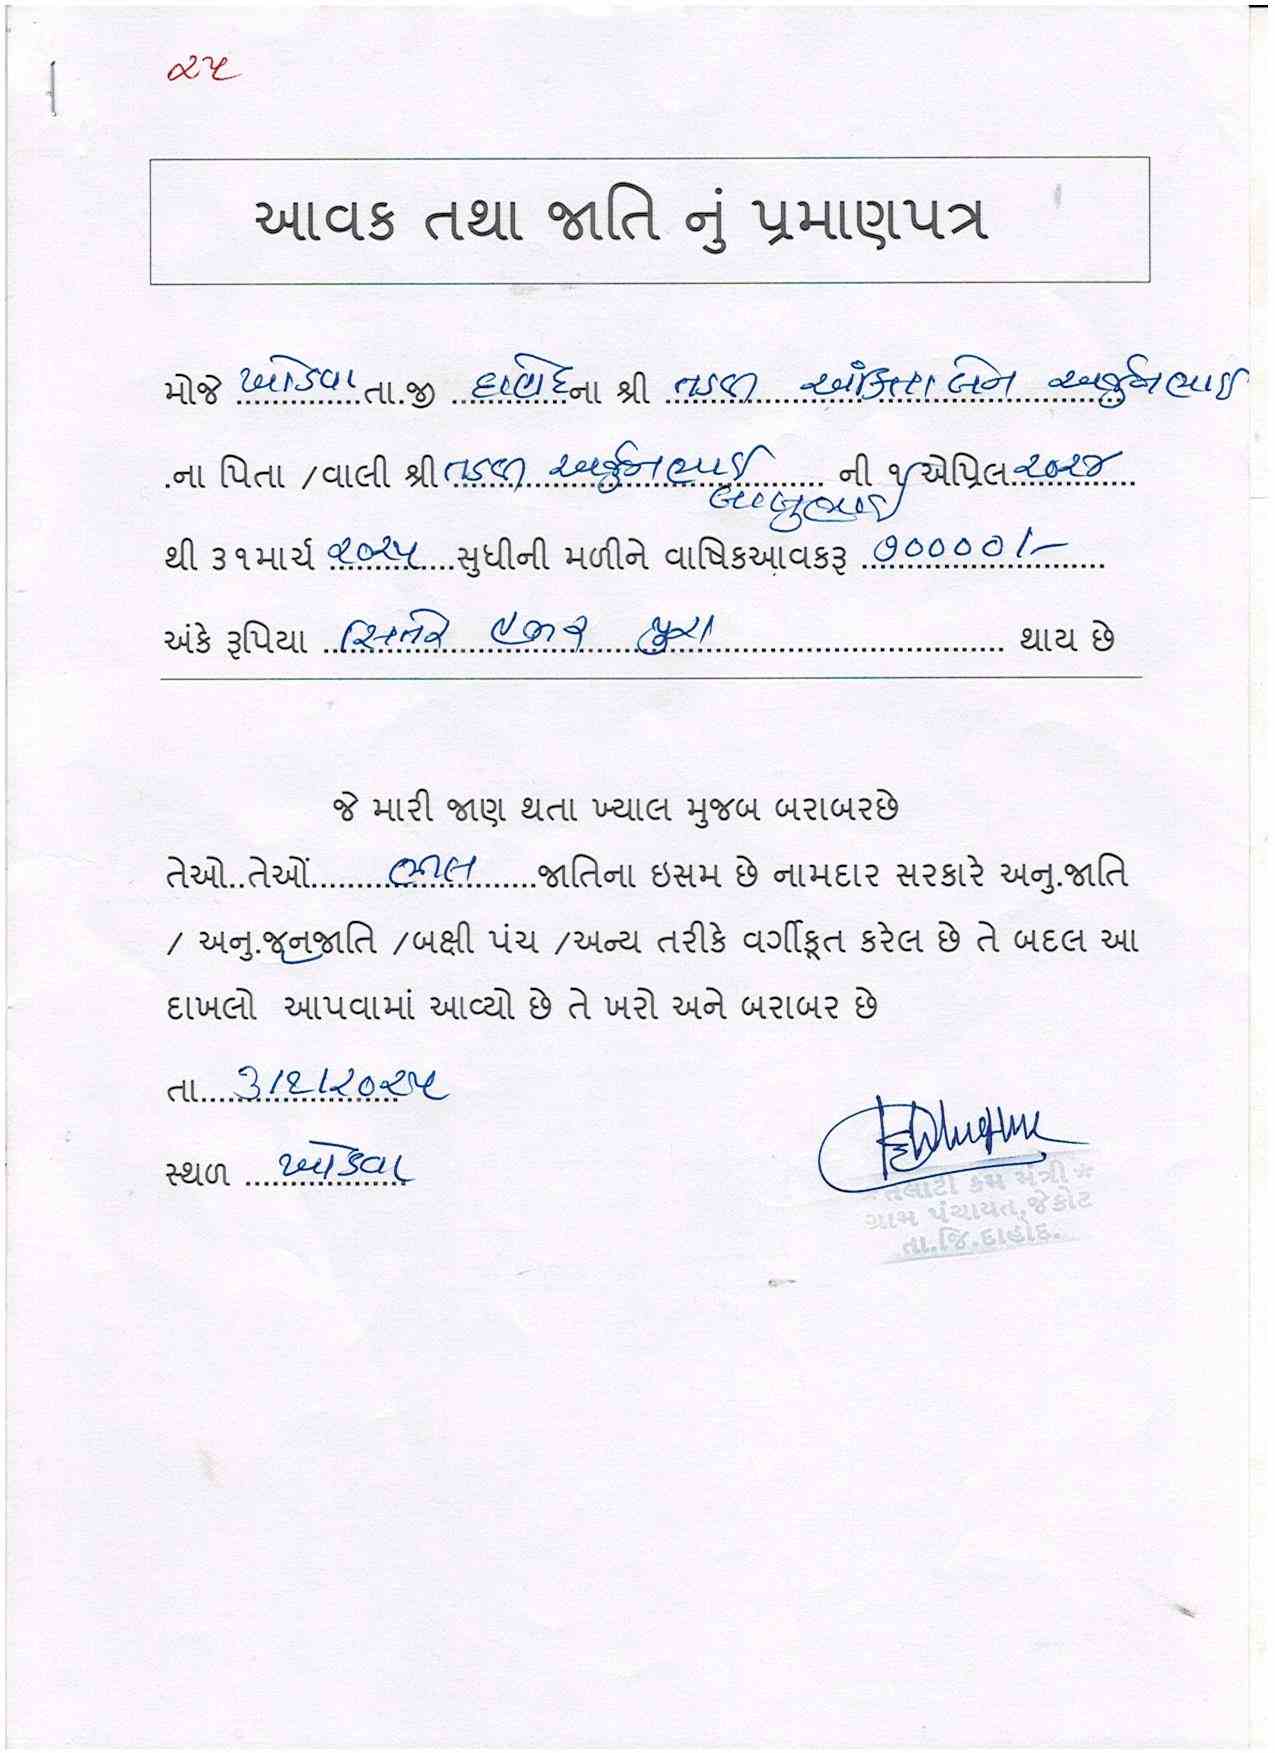 ૨૫
આવક તથા જાતિ નું પ્રમાણપત્ર
મોજે ખાડવા તા.જી દાહોદ ના શ્રી તડવી અંકિતાબેન અર્જુનભાઇ
.ના પિતા /વાલી શ્રી તડવી અર્જુનભાઇ ની ૧ એપ્રિલ ૨૦૨૪
બાબુભાઇ
થી ૩૧માર્ચ ૨૦૨૫ સુધીની મળીને વાષિકઆવકરૂ ૭૦૦૦૦/-
અંકે રૂપિયા સિતેર હજાર પુરા થાય છે
જે મારી જાણ થતા ખ્યાલ મુજબ બરાબરછે
તેઓ..તેઓં ભીલ જાતિના ઇસમ છે નામદાર સરકારે અનુ.જાતિ
/ અનુ.જનજાતિ /બક્ષી પંચ /અન્ય તરીકે વર્ગીકૃત કરેલ છે તે બદલ આ
દાખલો આપવામાં આવ્યો છે તે ખરો અને બરાબર છે
તા. ૩/૬/૨૦૨૫
સ્થળ ખાડવા
તલાટી કમ મંત્રી*
ગ્રામ પંચાયત,જેકોટ
તા.જિ.દાહોદ.